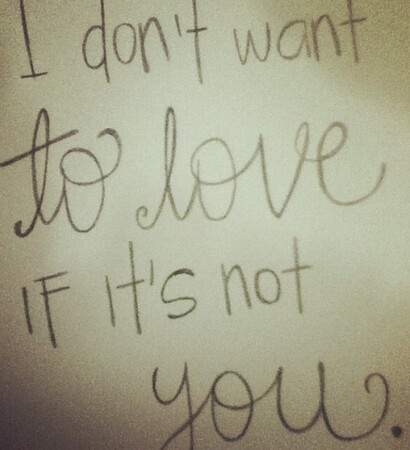 I don't want
to love
IF it's not
you.